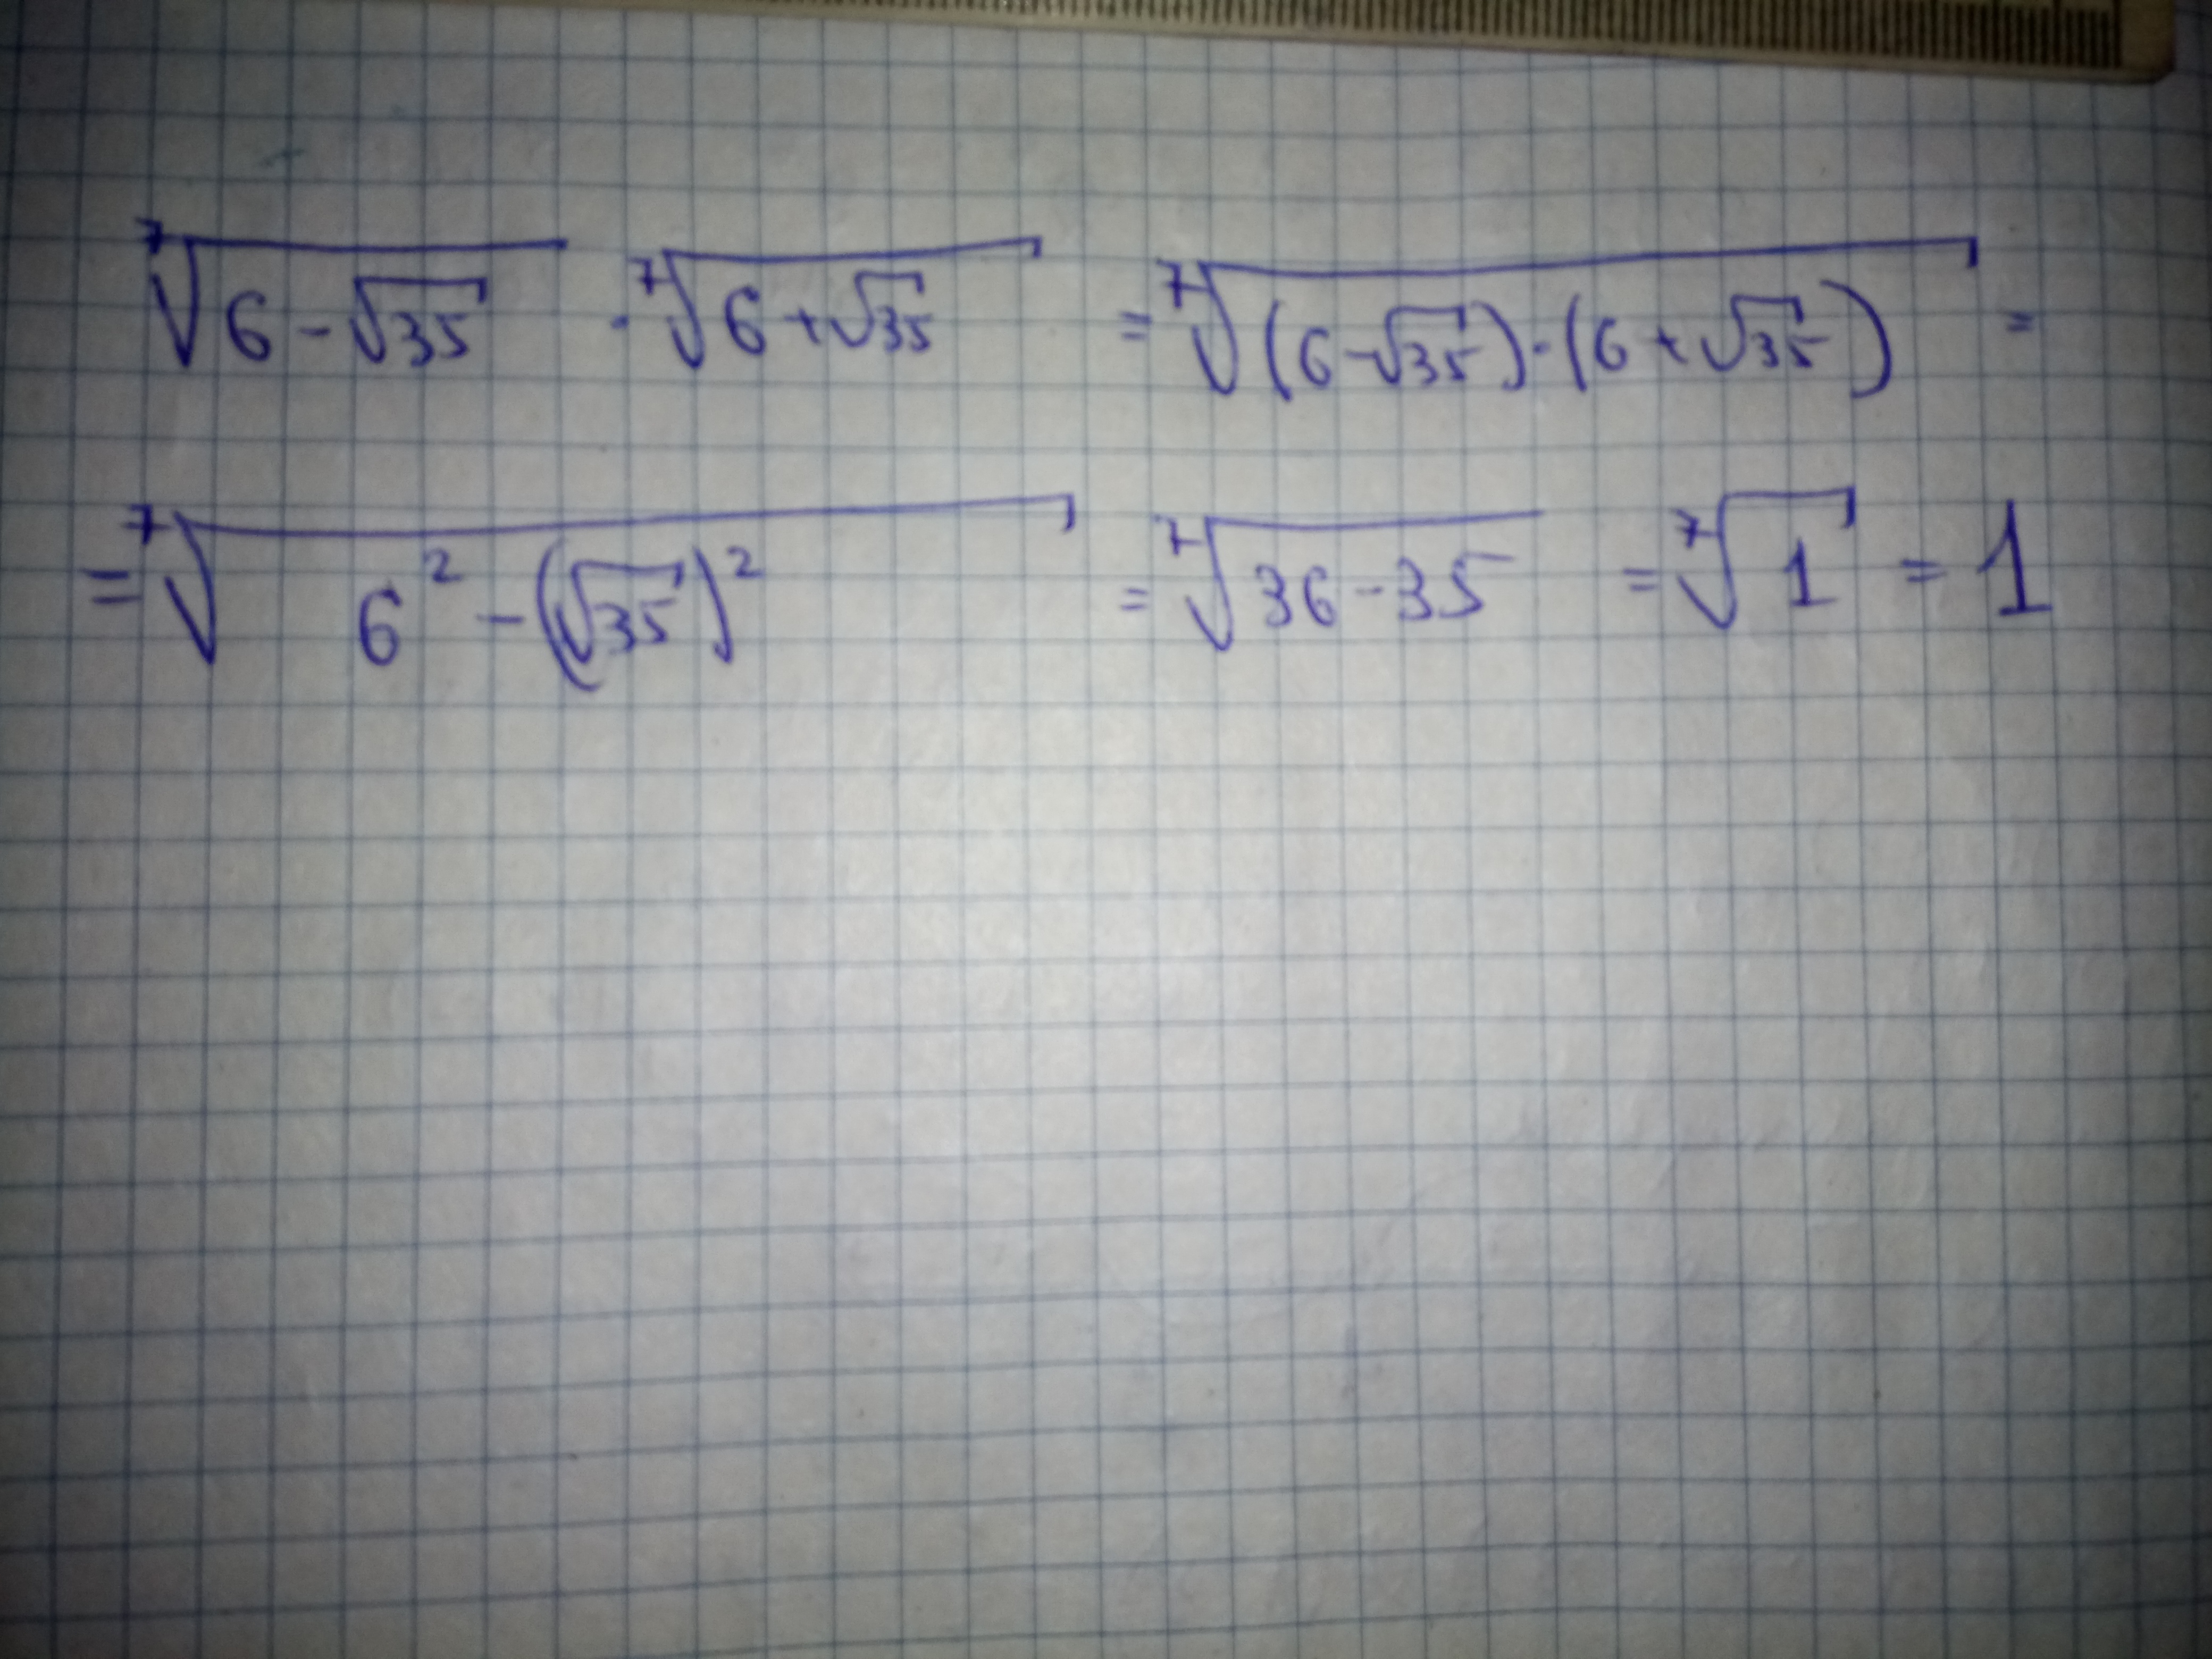 ⁷√(6-√35) · ⁷√(6+√35) = ⁷√((6-√35)·(6+√35)) =
= ⁷√(6² - (√35)²) = ⁷√(36-35) = ⁷√1 = 1